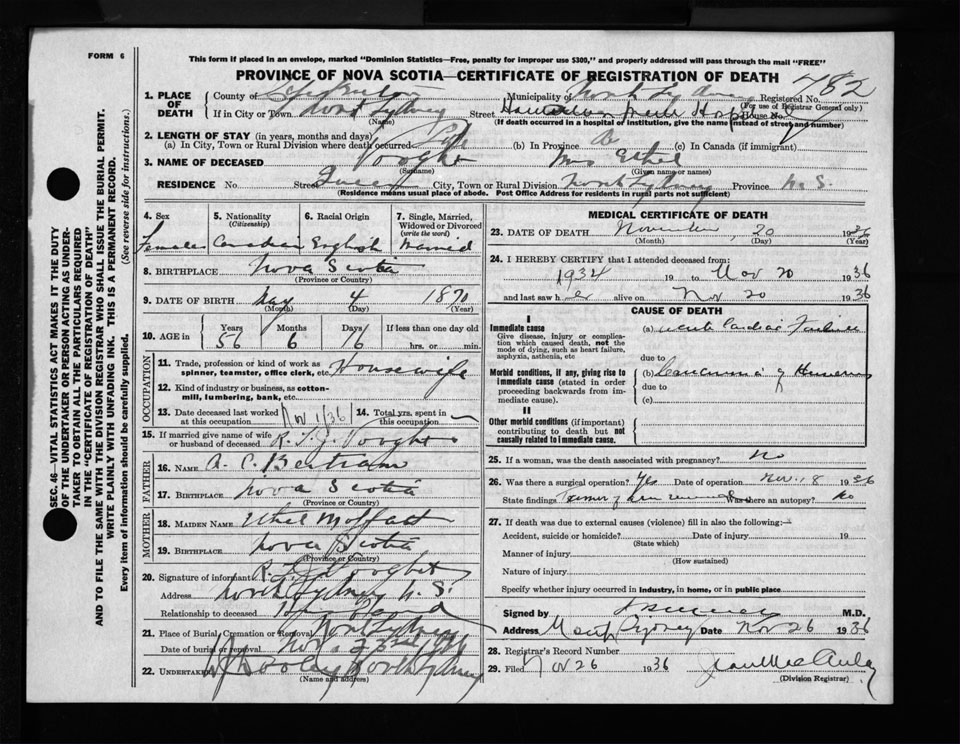 FORM 6
This form if placed in an envelope, marked "Dominion Statistics—Free, penalty for improper use $300," and properly addressed will pass through the mail "FREE"
PROVINCE OF NOVA SCOTIA—CERTIFICATE OF REGISTRATION OF DEATH
782
1. PLACE OF DEATH
County of Cape Breton Municipality of North Sydney Registered No.
(For use of Registrar General only)
If in City or Town North Sydney Street Hamilton Hospital House No.
(Name) (If death occurred in a hospital of institution, give the name instead of street and number)
2. LENGTH OF STAY (in years, months and days)
(a) In City, Town or Rural Division where death occurred (b) In Province (c) In Canada (if immigrant)
3. NAME OF DECEASED Vooght Mrs Ethel
(Surname) (Given name or names)
RESIDENCE No Street Queen City, Town or Rural Division North Sydney Province N. S.
(Residence means usual place of abode. Post Office Address for residents in rural parts not sufficient)
SEC. 46—VITAL STATISTICS ACT MAKES IT THE DUTY
OF THE UNDERTAKER OR PERSON ACTING AS UNDER-
TAKER TO OBTAIN ALL THE PARTICULARS REQUIRED
IN THE "CERTIFICATE OF REGISTRATION OF DEATH"
AND TO FILE THE SAME WITH THE DIVISION REGISTRAR WHO SHALL ISSUE THE BURIAL PERMIT.
WRITE PLAINLY WITH UNFADING INK. THIS IS A PERMANENT RECORD.
Every item of information should be carefully supplied. (See reverse side for instructions.)
4. Sex
Female
5. Nationality
(Citizenship)
Canadian
6. Racial Origin
English
7. Single, Married,
Widowed or Divorced
(write the word)
Married
8. BIRTHPLACE Nova Scotia
(Province or Country)
9. DATE OF BIRTH May 4 1870
(Month) (Day) (Year)
10. AGE in Years Months Days If less than one day old
56 6 16 hrs. or min.
OCCUPATION
11. Trade, profession or kind of work as Housewife
spinner, teamster, office clerk, etc.
12. Kind of industry or business, as cotton-
mill, lumbering, bank, etc.
13. Date deceased last worked at this occupation Nov 1/36
14. Total yrs. spent in this occupation
15. If married give name of wife
or husband of deceased R. Vooght
FATHER
16. NAME A. C. Bertram
17. BIRTHPLACE Nova Scotia
(Province or Country)
MOTHER
18. MAIDEN NAME Ethel Moffatt
19. BIRTHPLACE Nova Scotia
(Province or Country)
20. Signature of informant Vooght
Address North Sydney N. S.
Relationship to deceased Husband
21. Place of Burial, Cremation or Removal North Sydney
Date of burial or removal Nov.
22. UNDERTAKER North Sydney
(Name and address)
MEDICAL CERTIFICATE OF DEATH
23. DATE OF DEATH November 20 1936
(Month) (Day) (Year)
24. I HEREBY CERTIFY that I attended deceased from:
1934 19 to Nov 20 1936
and last saw her alive on Nov 20 1936
CAUSE OF DEATH
I
Immediate cause
Give disease, injury or complica-
tion which caused death, not the
mode of dying, such as heart failure,
asphyxia, asthenia, etc
(a) acute Cardiac Failure
due to
Morbid conditions, if any, giving rise to
immediate cause (stated in order
proceeding backwards from im-
mediate cause).
(b) Carcinoma of
due to
(c)
II
Other morbid conditions (if important)
contributing to death but not
causally related to immediate cause.
25. If a woman, was the death associated with pregnancy? No
26. Was there a surgical operation? Yes Date of operation Nov. 18 1936
State findings Was there an autopsy? No
27. If death was due to external causes (violence) fill in also the following:—
Accident, suicide or homicide? Date of injury 19
(State which)
Manner of injury
(How sustained)
Nature of injury
Specify whether injury occurred in Industry, in home, or in public place
Signed by M.D.
Address North Sydney Date Nov 26 1936
28. Registrar's Record Number
29. Filed Nov 26 1936
(Division Registrar)